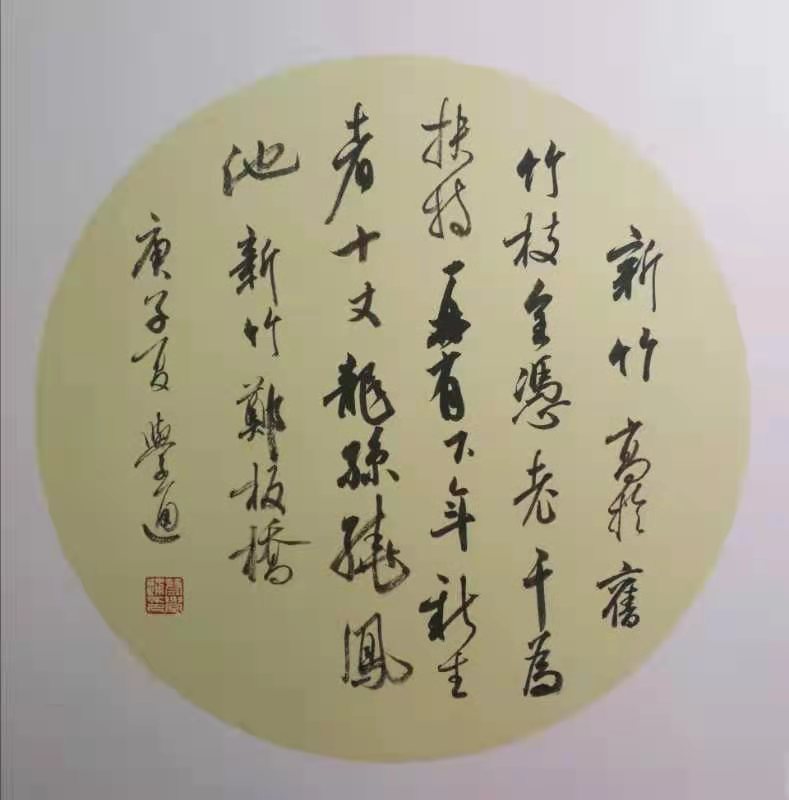 新竹高於舊
竹枝全憑老干為
扶持再有下年新生
者十丈龍孫繞鳳
池 新竹鄭板橋
庚子夏 學通